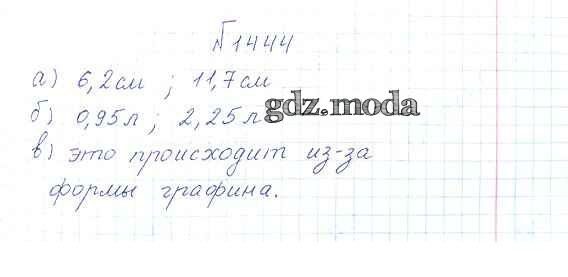 №1444
а) 6,2см ; 11,7см
б) 0,95л ; 2,25л
gdz.moda
в) это происходит из-за
формы графина.